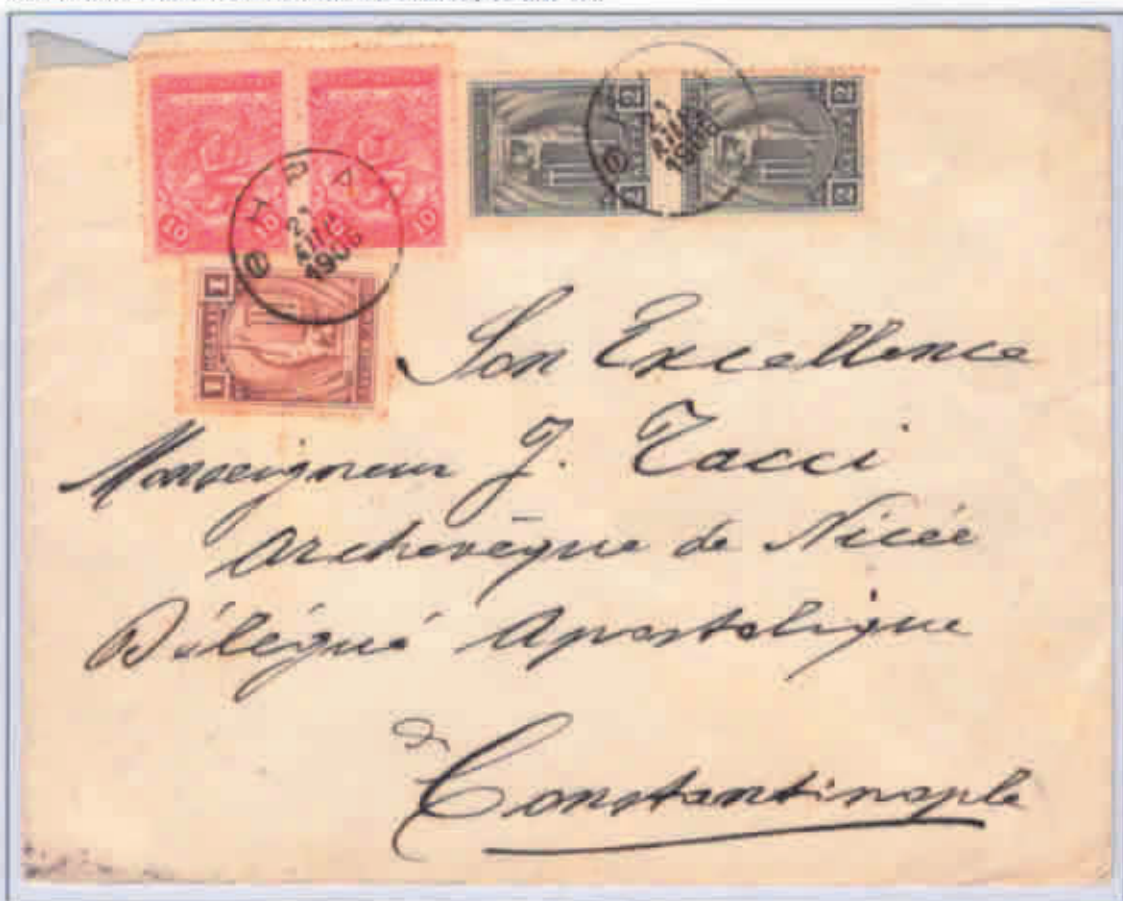 10 10 10
2 2
2 2
ΘΗΡΑ
1906
1
1
Son Excellence
Monseigneur J. Tacci
Archevêque de Nicée
Délégué Apostolique
Constantinople